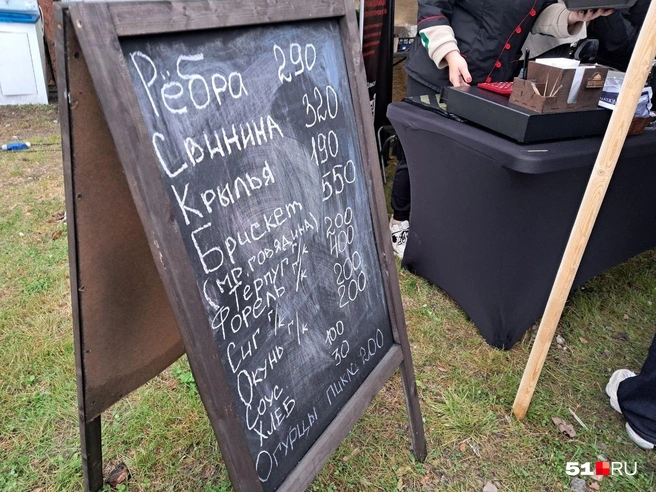 Рёбра 290
Свинина 320
Крылья 190
Брискет 550
(мр. говядина)
Терпуг г/к 200
Форель г/к 400
Сиг г/к 200
Окунь г/к 200
Соус 100
Хлеб 30
Огурцы пикле 200
51 RU